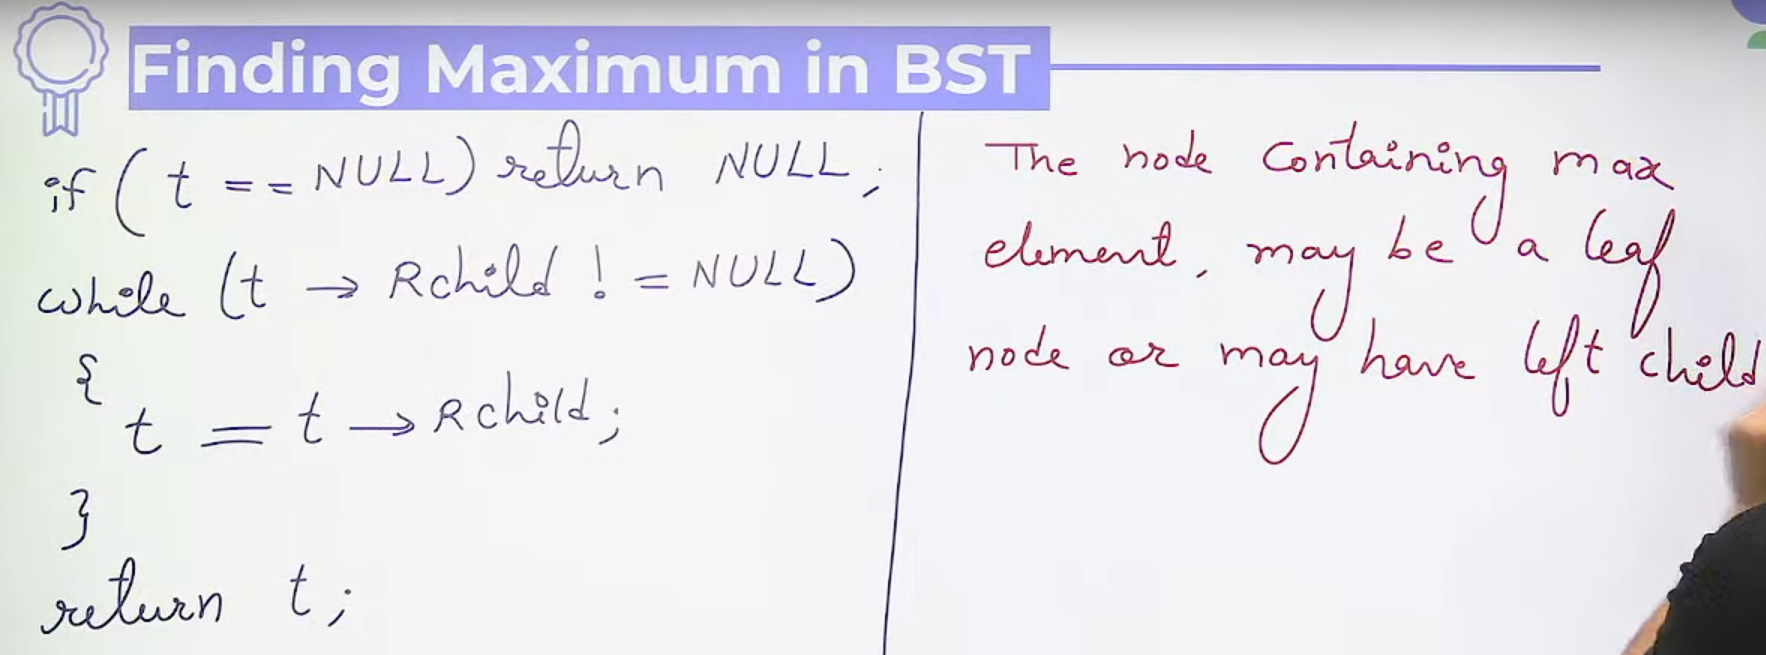 Finding Maximum in BST
if ( t == NULL) return NULL;
while (t → Rchild != NULL)
{
t = t → Rchild;
}
return t;
The node containing max
element, may be a leaf
node or may have left child